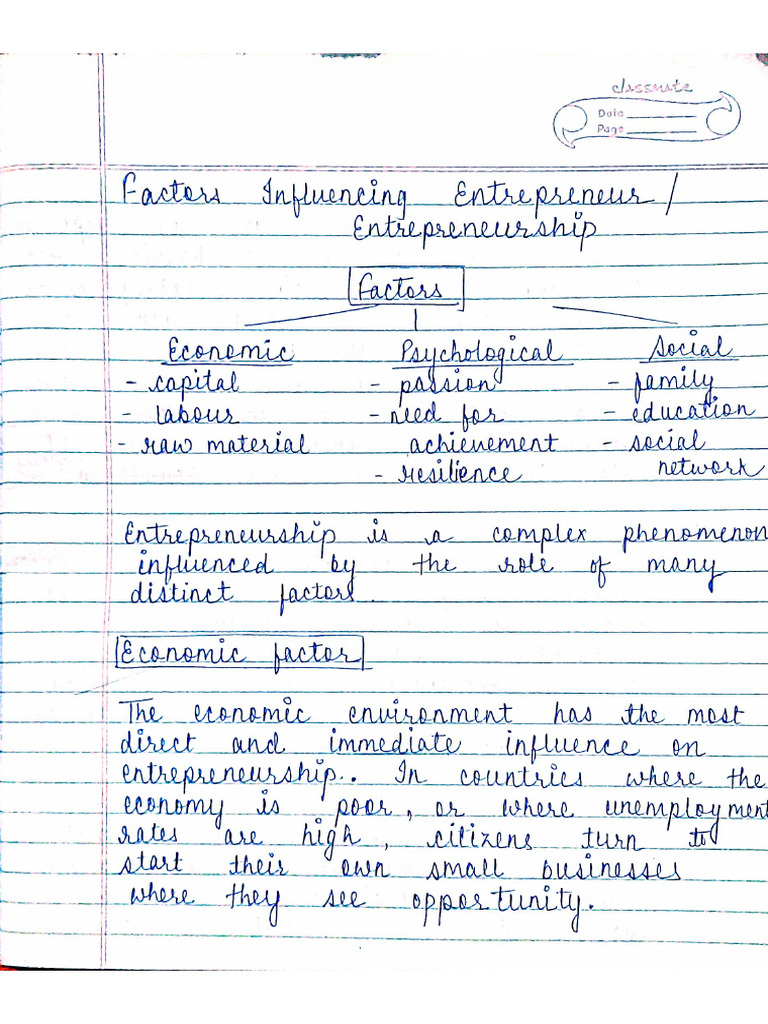 classmate
Date
Page
Factors Influencing Entrepreneur /
Entrepreneurship
Factors
Economic Psychological Social
- capital - passion - family
- labour - need for - education
- raw material achievement - social
- resilience network
Entrepreneurship is a complex phenomenon
influenced by the role of many
distinct factors.
Economic factor
The economic environment has the most
direct and immediate influence on
entrepreneurship.. In countries where the
economy is poor, or where unemployment
rates are high, citizens turn to
start their own small businesses
where they see opportunity.